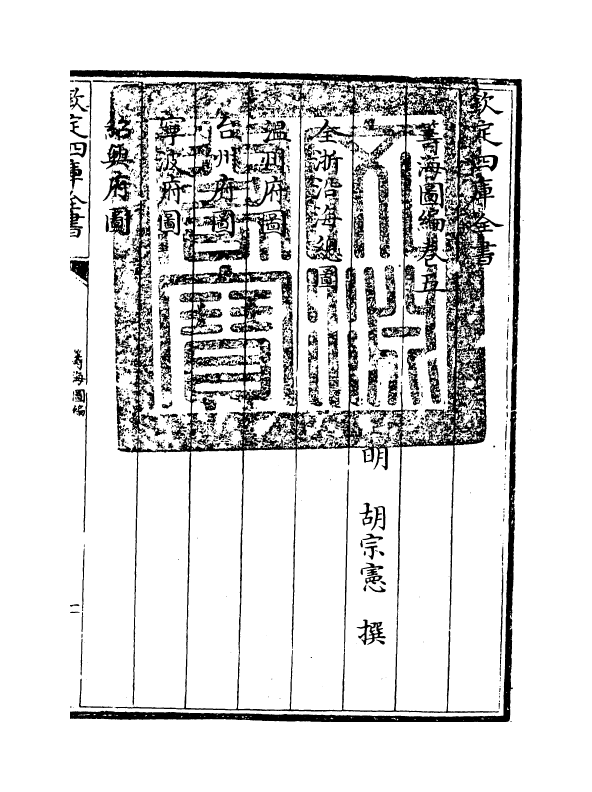 欽定四庫全書
籌海圖編卷五
明 胡宗憲 撰
全浙沿海總圖
溫州府圖
台州府圖
寧波府圖
紹興府圖
欽定四庫全書
籌海圖編
一
文淵閣寶